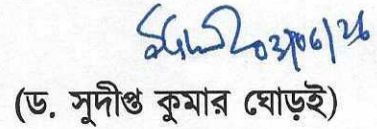 03/06/26
(ড. সুদীপ্ত কুমার ঘোড়ই)